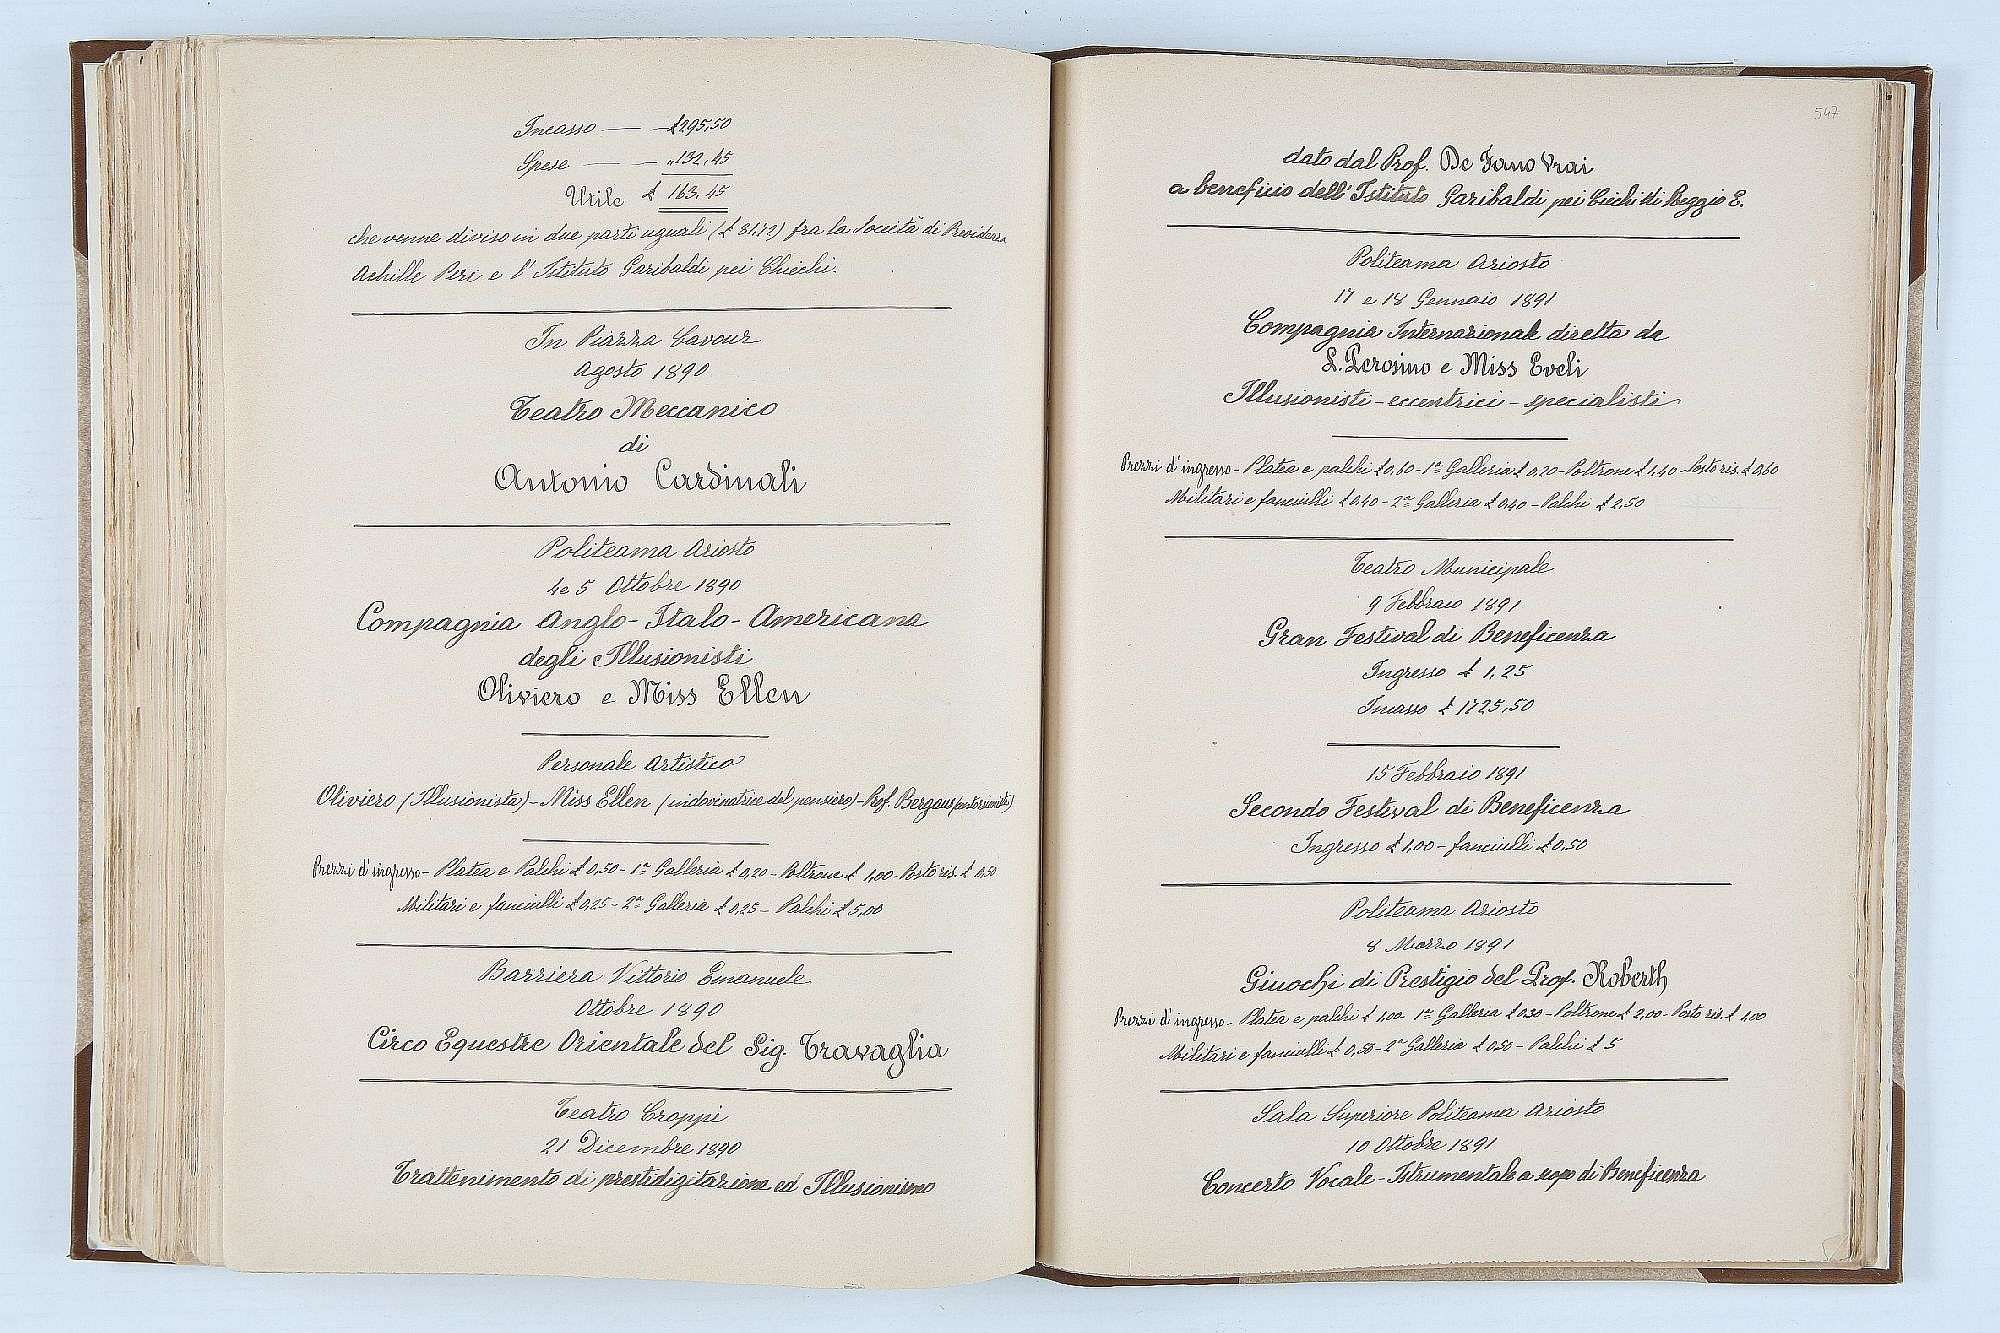 Incasso — — £ 295,50
Spese — — „ 132,45
Utile £ 163,45
che venne diviso in due parti uguali (£ 81,72) fra la Società di Previdenza
Achille Peri e l'Istituto Garibaldi pei Chiechi.
In Piazza Cavour
Agosto 1890
Teatro Meccanico
di
Antonio Cardinali
Politeama Ariosto
4 e 5 Ottobre 1890
Compagnia Anglo-Italo-Americana
degli Illusionisti
Oliviero e Miss Ellen
Personale Artistico
Oliviero (Illusionista) - Miss Ellen (indovinatrice del pensiero) - Prof. Bergaus
Prezzi d'ingresso - Platea e Palchi £ 0,50 - 1ª Galleria £ 0,20 - Poltrone £ 1,00 - Posto ris. £ 0,50
Militari e fanciulli £ 0,25 - 2ª Galleria £ 0,25 - Palchi £ 5,00
Barriera Vittorio Emanuele
Ottobre 1890
Circo Equestre Orientale del Sig. Travaglia
Teatro Croppi
21 Dicembre 1890
Trattenimento di prestidigitazione ed Illusionismo
547
dato dal Prof. De Fano Vrai
a beneficio dell'Istituto Garibaldi pei Ciechi di Reggio E.
Politeama Ariosto
17 e 18 Gennaio 1891
Compagnia Internazionale diretta da
L. Perosino e Miss Eveli
Illusionisti - eccentrici - specialisti
Prezzi d'ingresso - Platea e palchi £ 0,60 - 1ª Galleria £ 0,20 - Poltrone £ 1,40 - Posto ris. £ 0,60
Militari e fanciulli £ 0,40 - 2ª Galleria £ 0,40 - Palchi £ 2,50
Teatro Municipale
9 Febbraio 1891
Gran Festival di Beneficenza
Ingresso £ 1,25
Incasso £ 1725,50
15 Febbraio 1891
Secondo Festival di Beneficenza
Ingresso £ 1,00 - fanciulli £ 0,50
Politeama Ariosto
8 Marzo 1891
Giuochi di Prestigio del Prof. Roberth
Prezzi d'ingresso - Platea e palchi £ 1,00 1ª Galleria £ 0,30 - Poltrone £ 2,00 - Posto ris. £ 1,00
Militari e fanciulli £ 0,50 - 2ª Galleria £ 0,50 - Palchi £ 5
Sala Superiore Politeama Ariosto
10 Ottobre 1891
Concerto Vocale-Istrumentale a scopo di Beneficenza